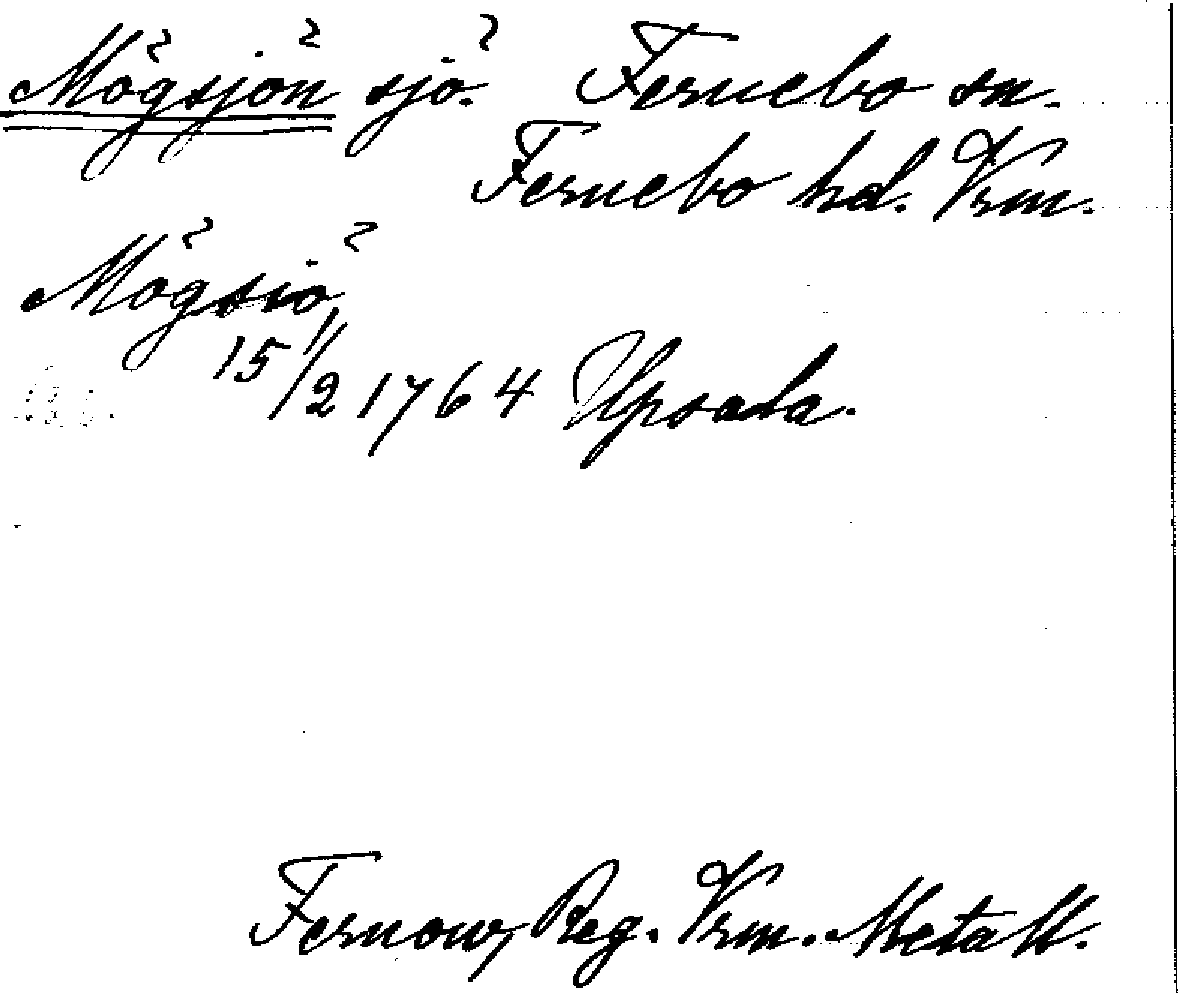 Mögsjön sjö. Fernebo sn.
Fernebo hd. Vrm.
Mögsiö
15 1/2 1764 Upsala.
Fernow, Reg. Vrm. Metall.